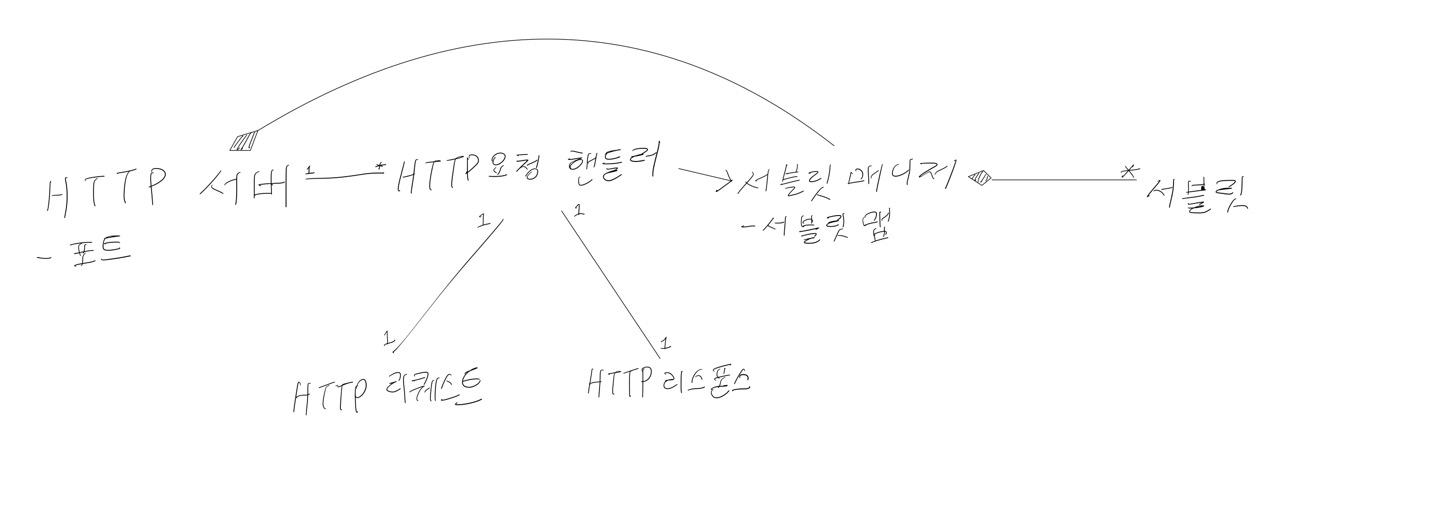 HTTP 서버 1 * HTTP 요청 핸들러 서블릿 매니저 * 서블릿
- 포트
- 서블릿 맵
1 1
1 1
HTTP 리퀘스트 HTTP 리스폰스